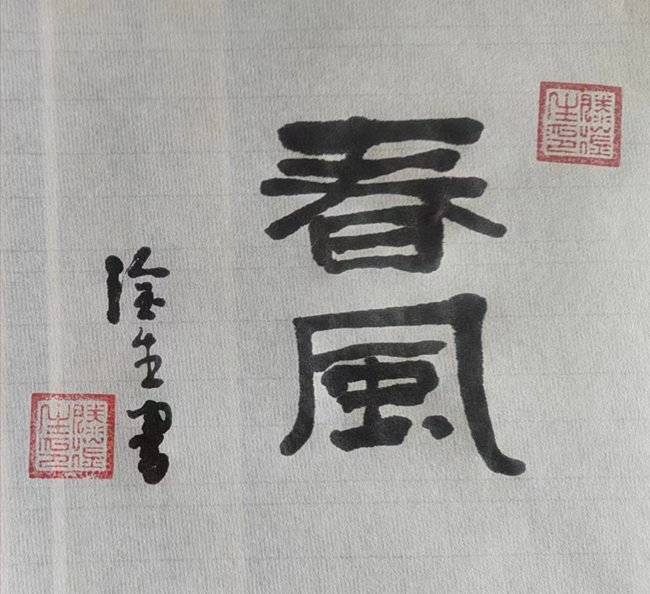 春風
陰生書